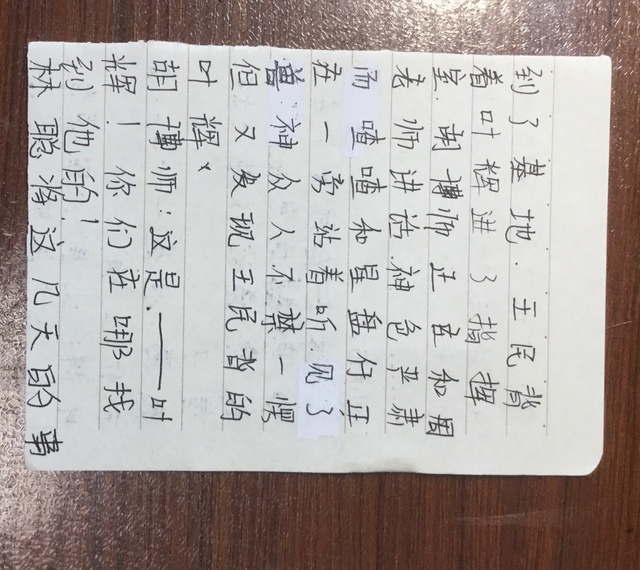 到了墓地.王民背
着叶辉进了指挥
室.胡博师正在和周
老师讲话.神色严肃
而喳喳和星盘付正
在一旁站着听.见了
兽神众人不禁一愣
但又发现王民背的
叶辉、
胡博师:这是.——叶
辉!你们在哪找
到他的!
林聪将这几天的事